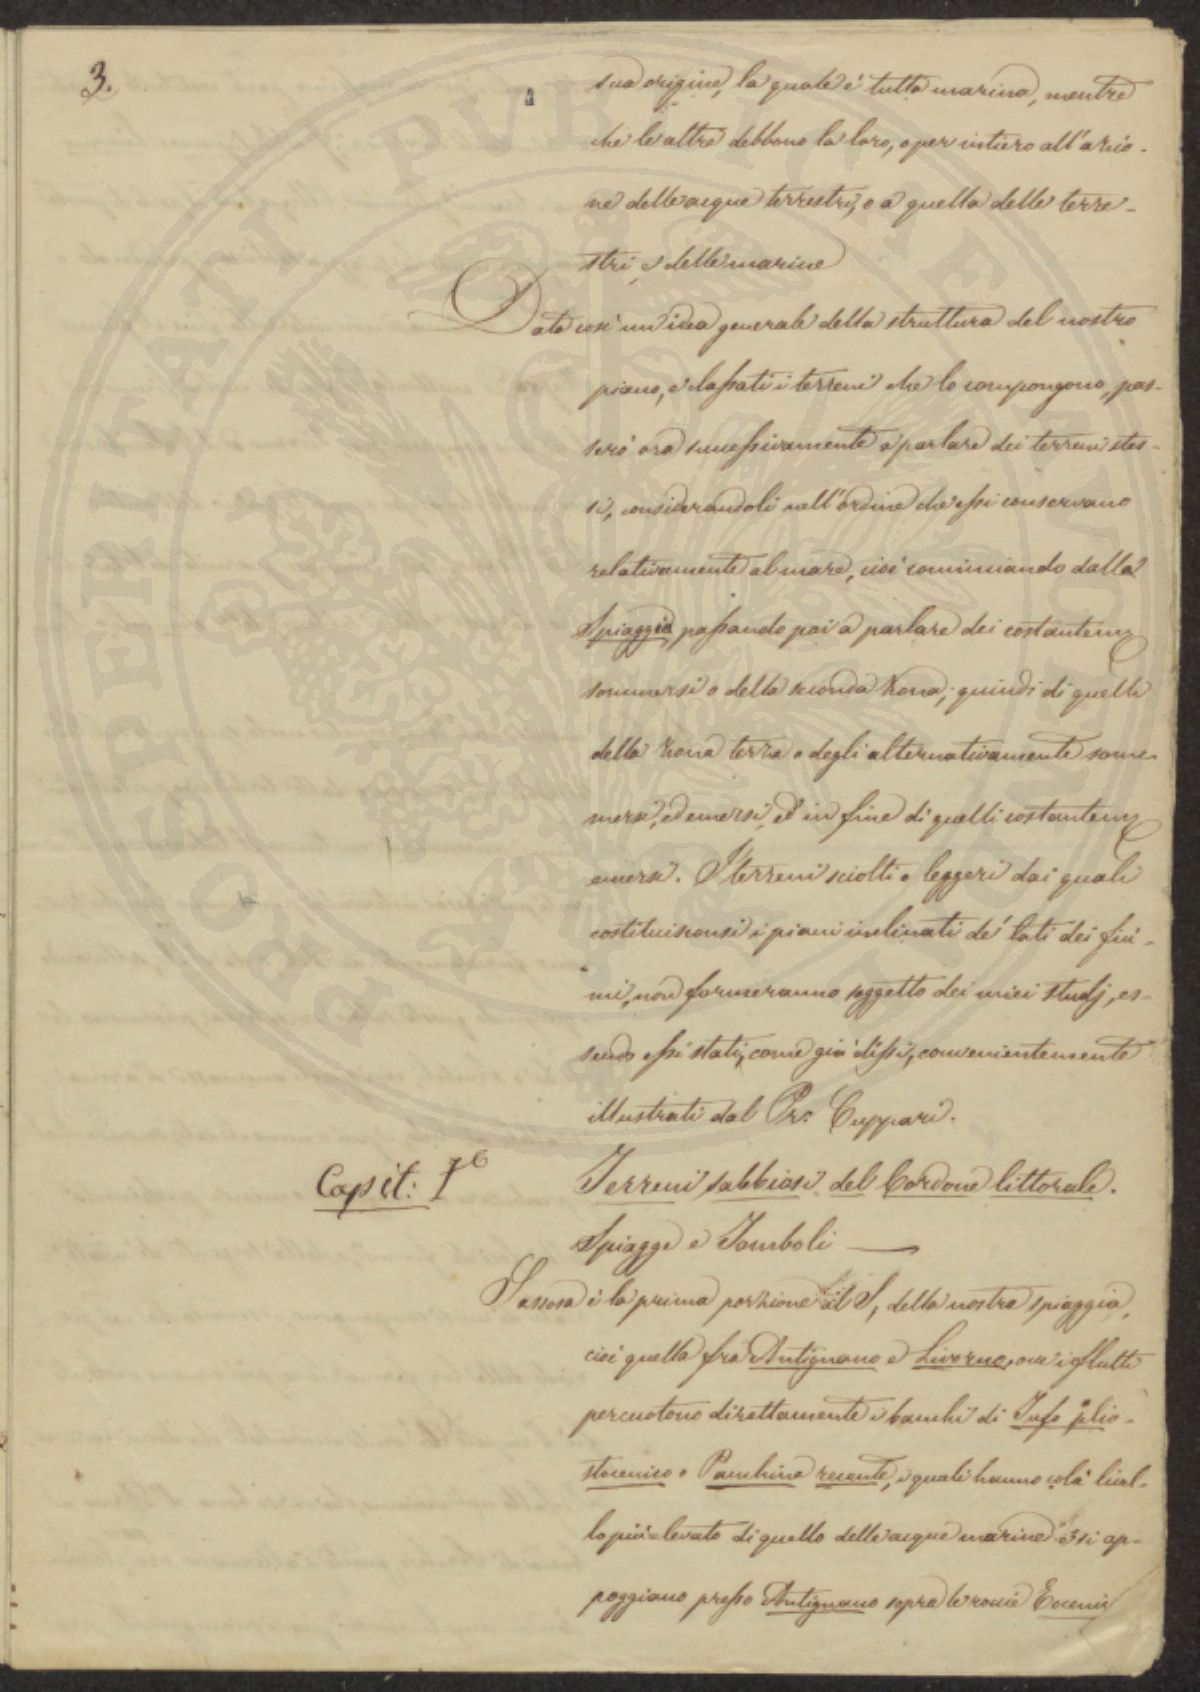 3.
sua origine, la quale è tutta marina, mentre
che le altre debbono la loro, o per intiero all'azio-
ne delle acque terrestri, o a quella delle terre-
stri, e delle marine
Data così un'idea generale della struttura del nostro
piano, e classati i terreni che lo compongono, pas-
serò ora successivamente a parlare dei terreni stes-
si, considerandoli nell'ordine che essi conservano
relativamente al mare, cioè cominciando dalla
Spiaggia, passando poi a parlare dei costantem
sommersi o della seconda zona; quindi di quelli
della zona terza o degli alternativamente som-
mersi, ed emersi, ed in fine di quelli costantem
emersi. I terreni sciolti e leggeri dai quali
costituisconsi i piani inclinati de' lati dei fiu-
mi, non formeranno soggetto dei miei studj, es-
sendo essi stati, come già dissi, convenientemente
illustrati dal Pr. Cuppari.
Capit: I°
Terreni sabbiosi del Cordone littorale.
Spiagge e Tomboli —
Sassosa è la prima porzione al S, della nostra spiaggia,
cioè quella fra Antignano e Livorno, ove i flutti
percuotono direttamente i banchi di Tufo plio-
stocenico o Panchina recente, i quali hanno colà livel-
lo più elevato di quello delle acque marine e si ap-
poggiano presso Antignano sopra le roccie Eoceni
PROSPERITATI PVBLICAE